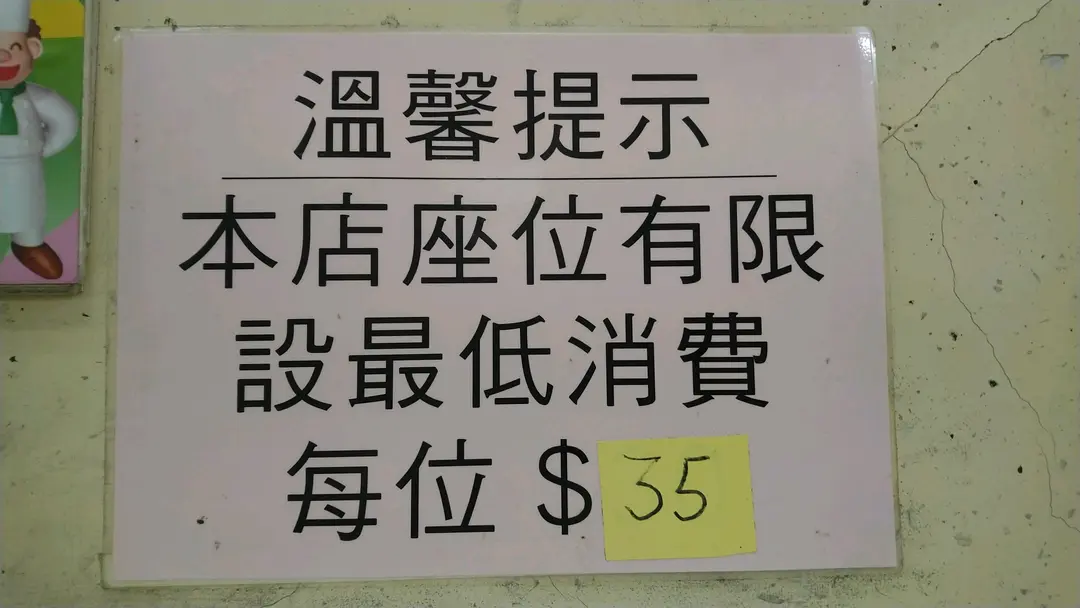 溫馨提示
本店座位有限
設最低消費
每位 $35